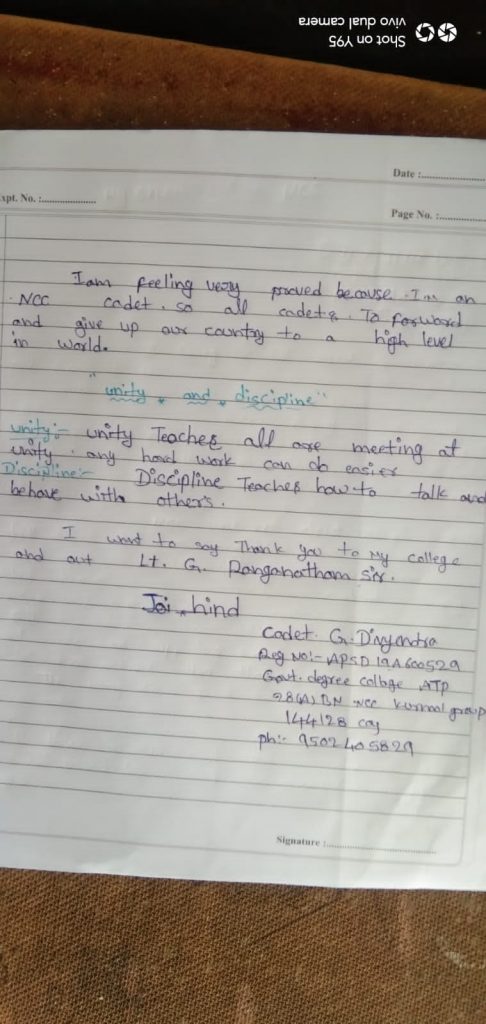 Shot on Y95
vivo dual camera
Date :....................
Expt. No. :....................
Page No. :....................
I am feeling very proved because. I'm an
NCC cadet. so all cadets. To forword
and give up our country to a high level
in world.
"unity and discipline"
unity:- unity Teaches all are meeting at
unity. any hard work can do easier
Discipline:- Discipline Teaches how to talk and
behave with other's.
I want to say Thank you to My college
and out Lt. G. Ranganatham sir.
Jai hind
Cadet. G. Divyendra
Reg No:- APSD19A600529
Govt. degree college ATP
28(A) BN NCC Kurnool group
144128
ph:- 9502405829
Signature :....................